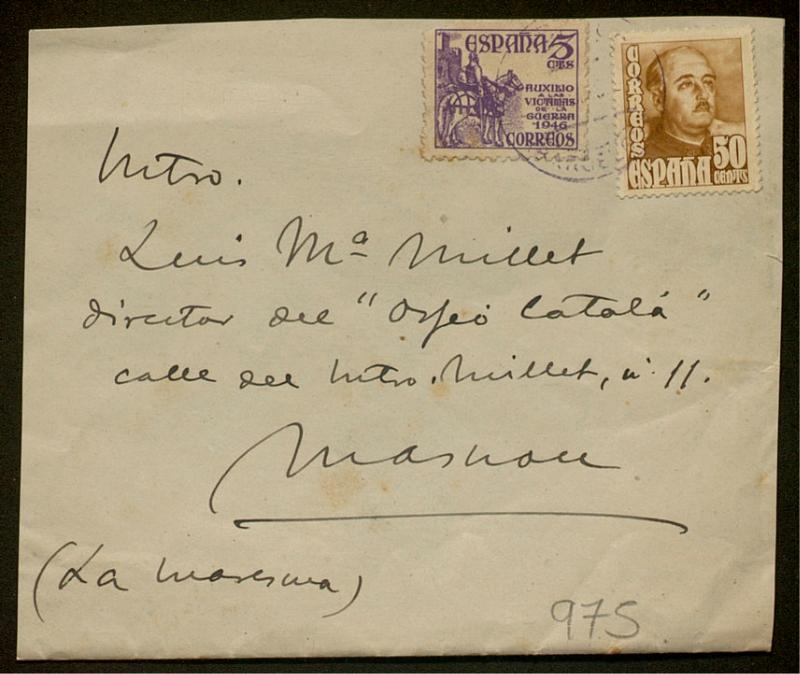 ESPAÑA 5
CTS
AUXILIO
A LAS
VICTIMAS
DE LA
GUERRA
1946
CORREOS
CORREOS
ESPAÑA 50
CENTS
Mtro.
Luis Mª Millet
director del "Orfeó Catalá"
calle del Mtro. Millet, nº 11.
Masnou
(La Maresma)
975